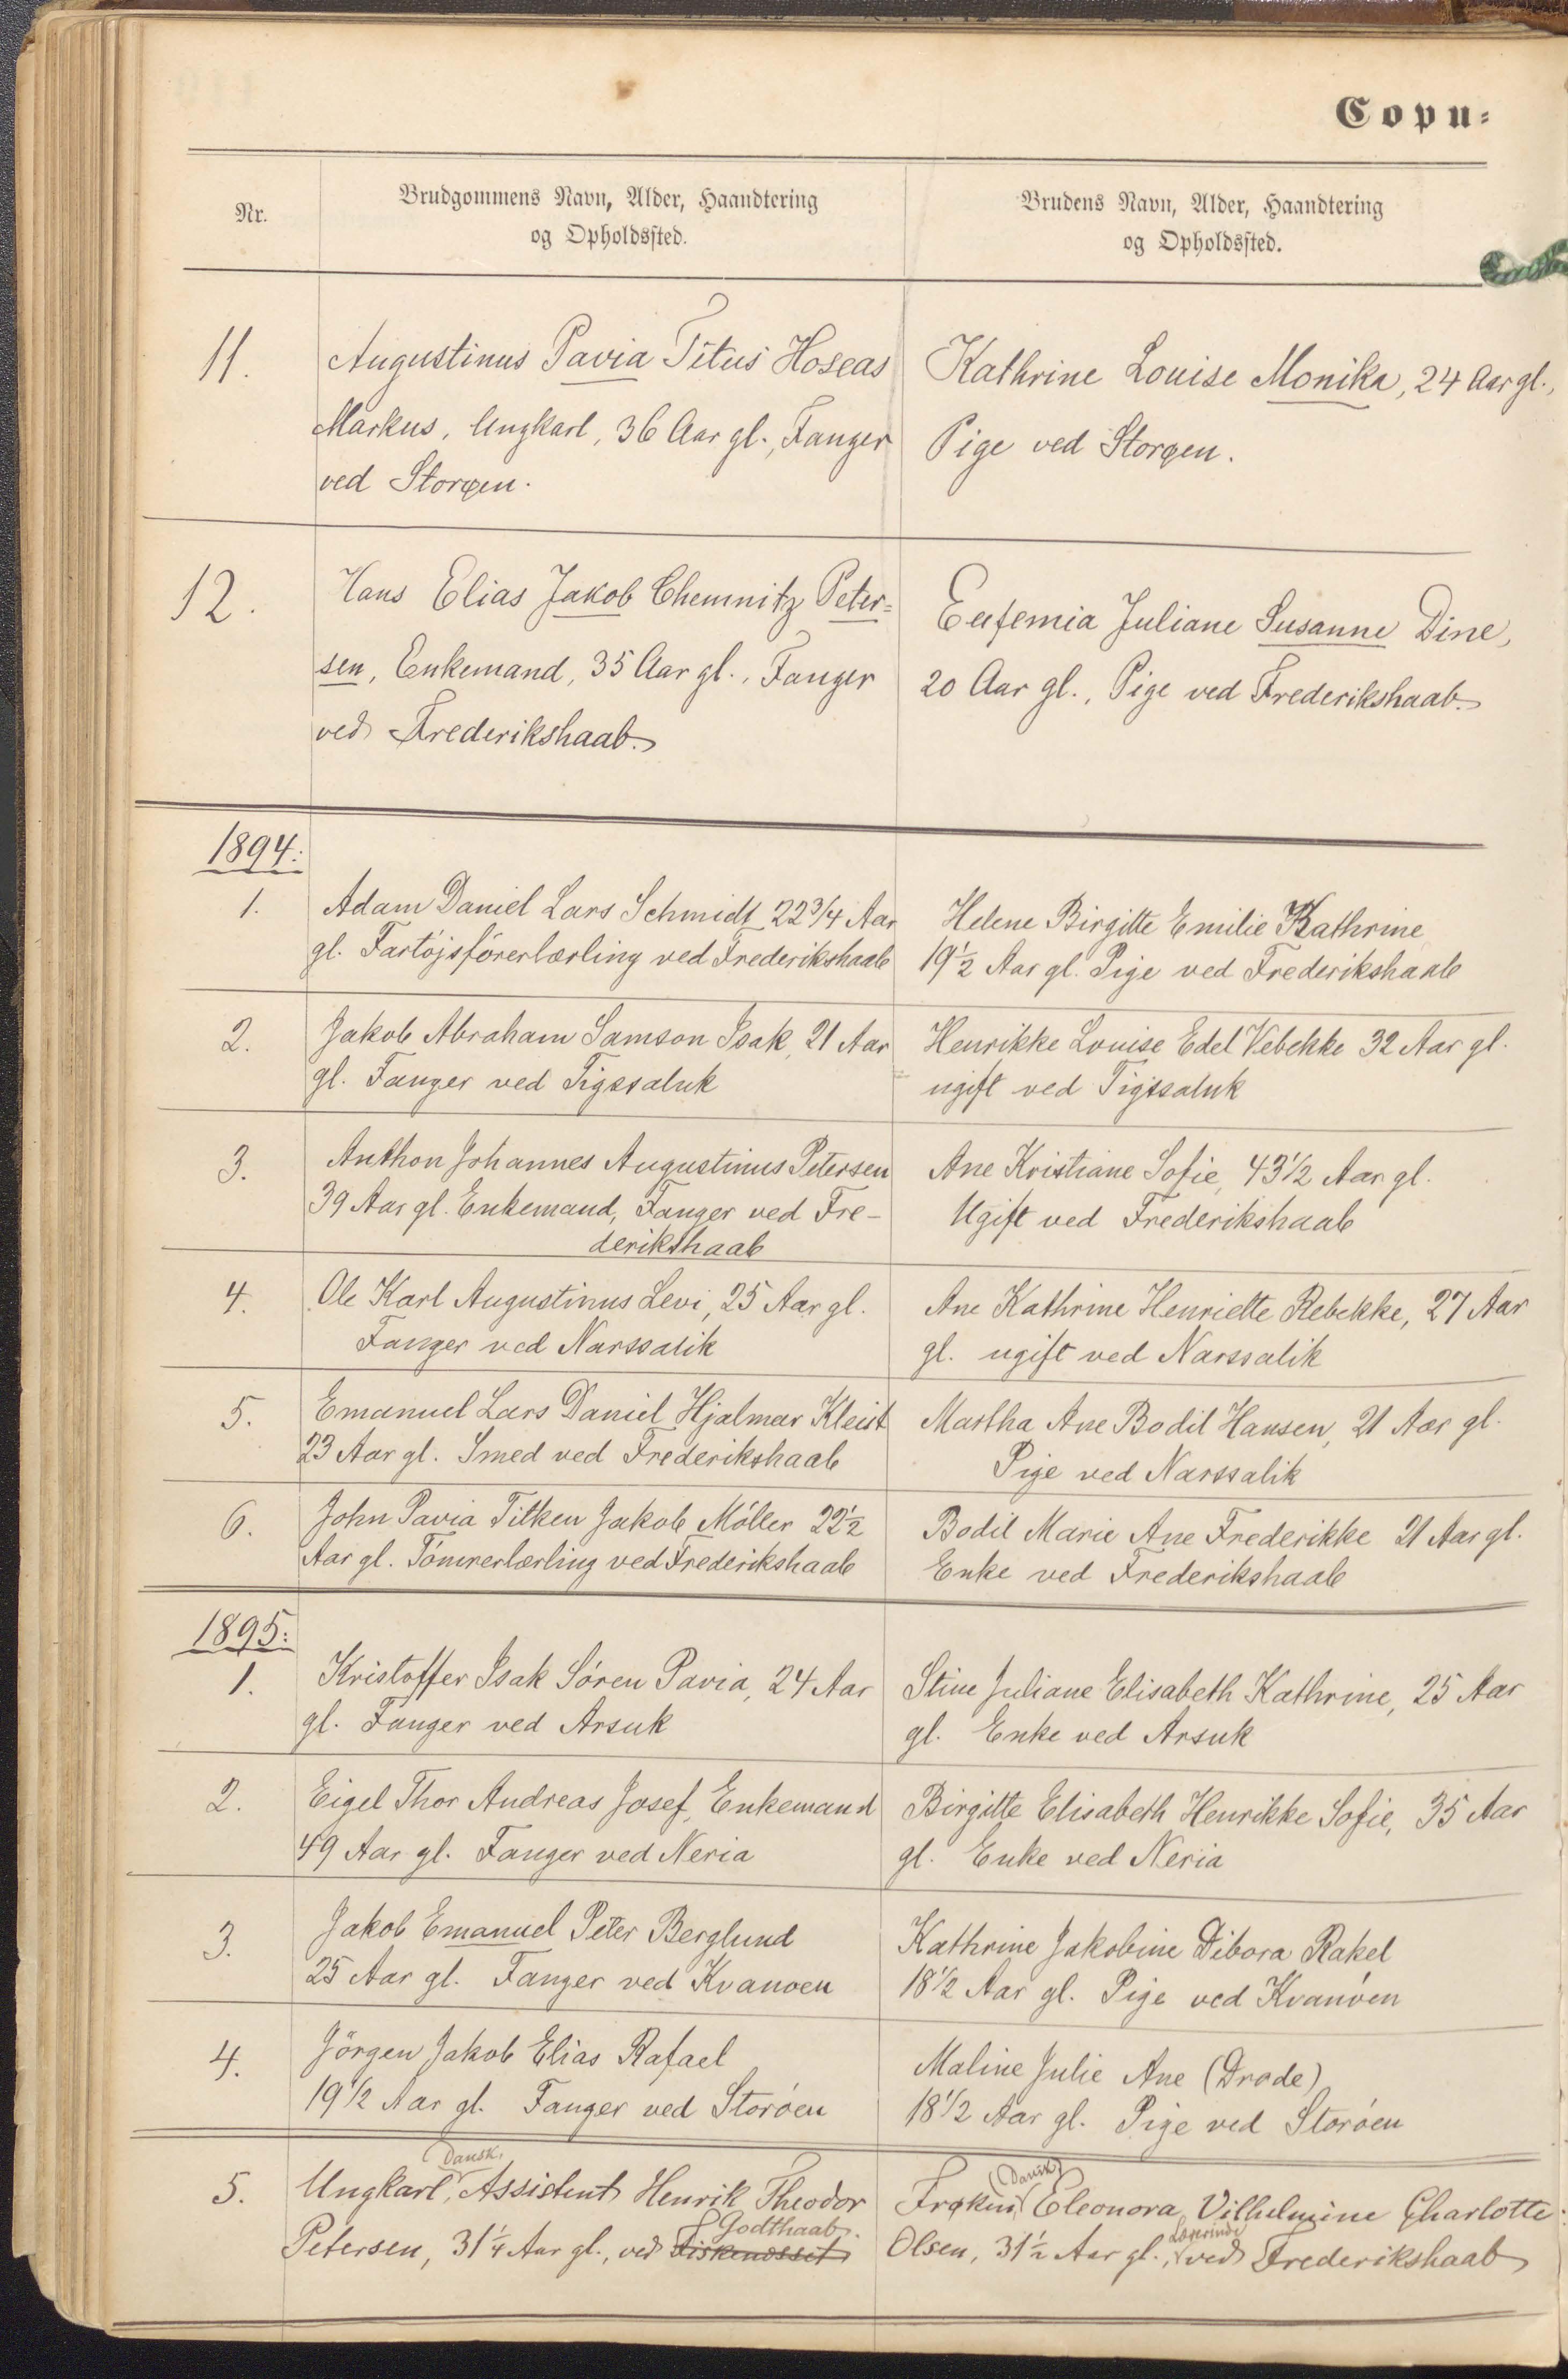 Copu-
Nr.
Brudgommens Navn, Alder, Haandtering
og Opholdssted.
Brudens Navn, Alder, Haandtering
og Opholdssted.
11.
Augustinus Pavia Titus Hoseas
Markus, Ungkarl, 36 Aar gl., Fanger
ved Storøen.
Kathrine Louise Monika, 24 Aar gl.,
Pige ved Storøen.
12.
Hans Elias Jakob Chemnitz Peter-
sen, Enkemand, 35 Aar gl., Fanger
ved Frederikshaab.
Eufemia Juliane Susanne Dine,
20 Aar gl., Pige ved Frederikshaab.
1894:
1.
Adam Daniel Lars Schmidt 22 3/4 Aar
gl. Fartöjsförerlærling ved Frederikshaab
Helene Birgitte Emilie Kathrine
19 1/2 Aar gl. Pige ved Frederikshaab
2.
Jakob Abraham Samson Isak, 21 Aar
gl. Fanger ved Tigssaluk
Henrikke Louise Edel Vebekke 32 Aar gl.
ugift ved Tigssaluk
3.
Anthon Johannes Augustinus Petersen
39 Aar gl. Enkemand, Fanger ved Fre-
derikshaab
Ane Kristiane Sofie, 43 1/2 Aar gl.
Ugift ved Frederikshaab
4.
Ole Karl Augustinus Levi, 25 Aar gl.
Fanger ved Narssalik
Ane Kathrine Henriette Rebekke, 27 Aar
gl. ugift ved Narssalik
5.
Emanuel Lars Daniel Hjalmar Kleist
23 Aar gl. Smed ved Frederikshaab
Martha Ane Bodil Hansen, 21 Aar gl.
Pige ved Narssalik
6.
John Pavia Titken Jakob Möller 22 1/2
Aar gl. Tömrerlærling ved Frederikshaab
Bodil Marie Ane Frederikke 21 Aar gl.
Enke ved Frederikshaab
1895:
1.
Kristoffer Isak Sören Pavia, 24 Aar
gl. Fanger ved Arsuk
Stine Juliane Elisabeth Kathrine, 25 Aar
gl. Enke ved Arsuk
2.
Eigel Thor Andreas Josef, Enkemand
49 Aar gl. Fanger ved Neria
Birgitte Elisabeth Henrikke Sofie, 35 Aar
gl. Enke ved Neria
3.
Jakob Emanuel Peter Berglund
25 Aar gl. Fanger ved Kvanoen
Kathrine Jakobine Dibora Rakel
18 1/2 Aar gl. Pige ved Kvanöen
4.
Jörgen Jakob Elias Rafael
19 1/2 Aar gl. Fanger ved Storöen
Maline Julie Ane (Drode)
18 1/2 Aar gl. Pige ved Storöen
5.
Dansk,
Ungkarl, Assistent Henrik Theodor
Godthaab.
Petersen, 31 1/4 Aar gl., ved Fiskenæsset
(Dansk)
Frøken Eleonora Vilhelmine Charlotte
Lærerinde
Olsen, 31 1/2 Aar gl., ved Frederikshaab